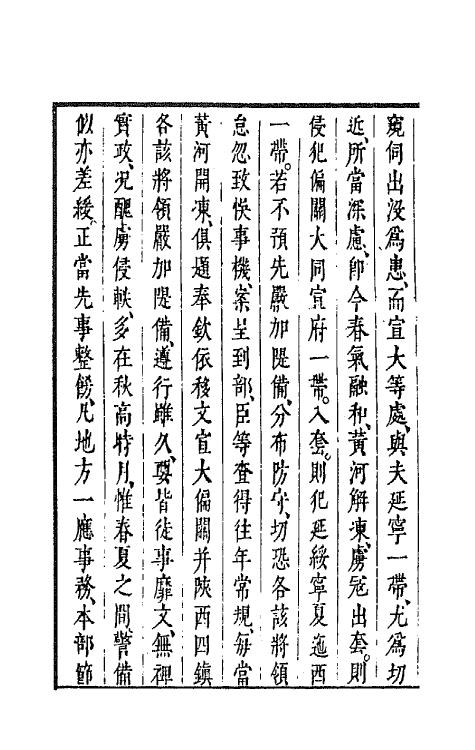 窺伺出没爲患、而宣大等處、與夫延寧一帶、尤爲切
近、所當深慮、卽今春氣融和、黃河解凍、虜冦出套。則
侵犯偏關大同宣府一帶。入套。則犯延綏寧夏迤西
一帶。若不預先嚴加隄備、分布防守、切恐各該將領
怠忽致悞事機、案呈到部、臣等查得往年常規、每當
黃河開凍、俱題奉欽依移文宣大偏關并陝西四鎮
各該將領嚴加隄備、遵行雖久、要皆徒事靡文、無裨
實政、况醜虜侵軼、多在秋高時月、惟春夏之間警備
似亦差緩、正當先事整飭、凡地方一應事務、本部節